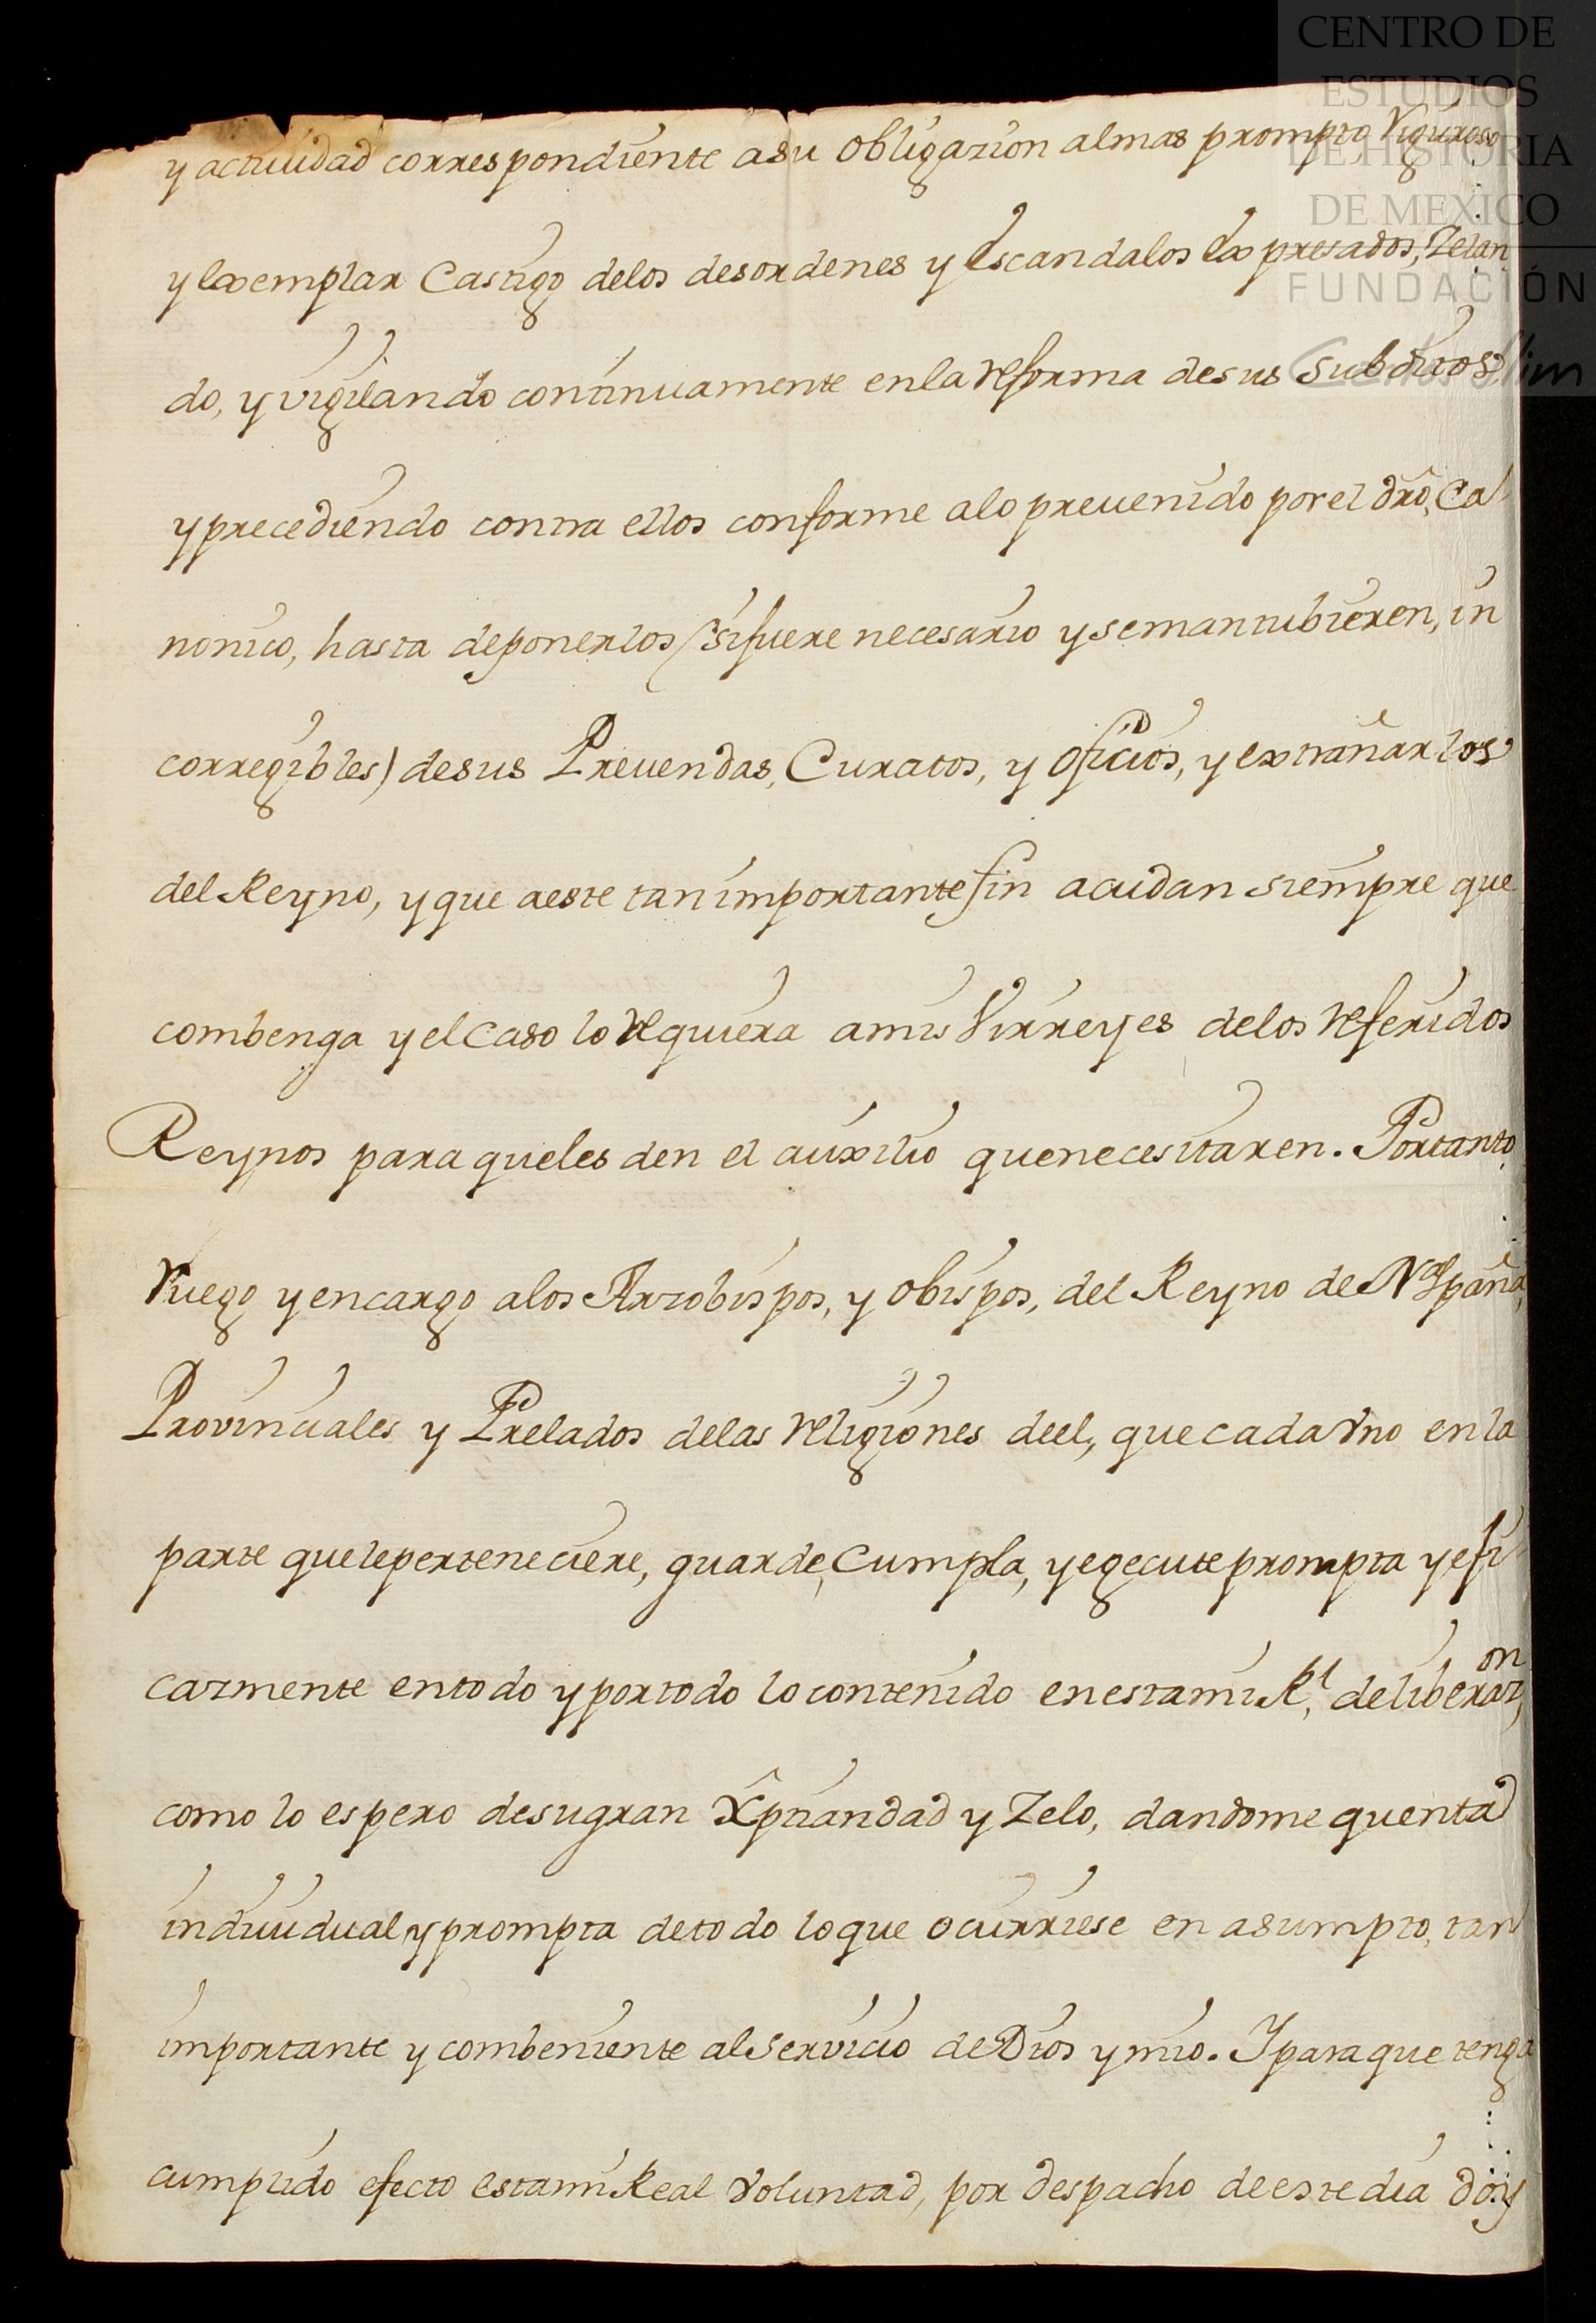 CENTRO DE
ESTUDIOS
DE HISTORIA
DE MEXICO
FUNDACIÓN
Carlos Slim
y actiuidad correspondiente asu obligazion almas prompto Viguroso
y exemplar Castigo delos desordenes y Escandalos Expresados, Zelan
do, y vigilando continuamente enla reforma desus subditos
y precediendo contra ellos conforme alo preuenido por el dro, Ca
nonico, hasta deponerlos (si fuere necesario y se mantubieren, in
corregibles) desus Preuendas, Curatos, y oficios, y extrañarlos
del Reyno, y que aeste tan importante fin acudan siempre que
combenga y el Caso lo requiera amis Virreyes delos referidos
Reynos para queles den el auxilio que necesitaren. Portanto
Ruego y encargo alos Arzobispos, y obispos, del Reyno de Nª. España,
Provinciales y Prelados delas religiones deel, que cada Vno enla
parte quele perteneciere, guarde, Cumpla, y egecute prompta y efi
cazmente entodo y portodo lo contenido enesta mi Rl. deliberazon,
como lo espero desu gran Xptiandad y Zelo, dandome quenta
indiuidual y prompta detodo loque ocurriese en asumpto, tan
importante y combeniente al Servicio de Dios y mio. Y para que tenga
cumplido efecto esta mi Real Voluntad, por despacho de este dia doy